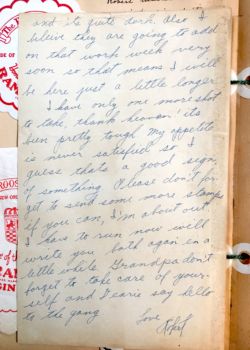 and its quite dark. Also I
beleive they are going to add
on that work week very
soon so that means I will
be here just a little longer
I have only one more shot
to take, thank heaven! its
been pretty tough My appetite
is never satisfied so I
guess thats a good sign,
of something Please don't for-
get to send some more stamps
if you can, I'm about out
I have to run now will
write you both again in a
little while Grandpa don't
forget to take care of your-
self and say hello
to the gang
Love
Robert